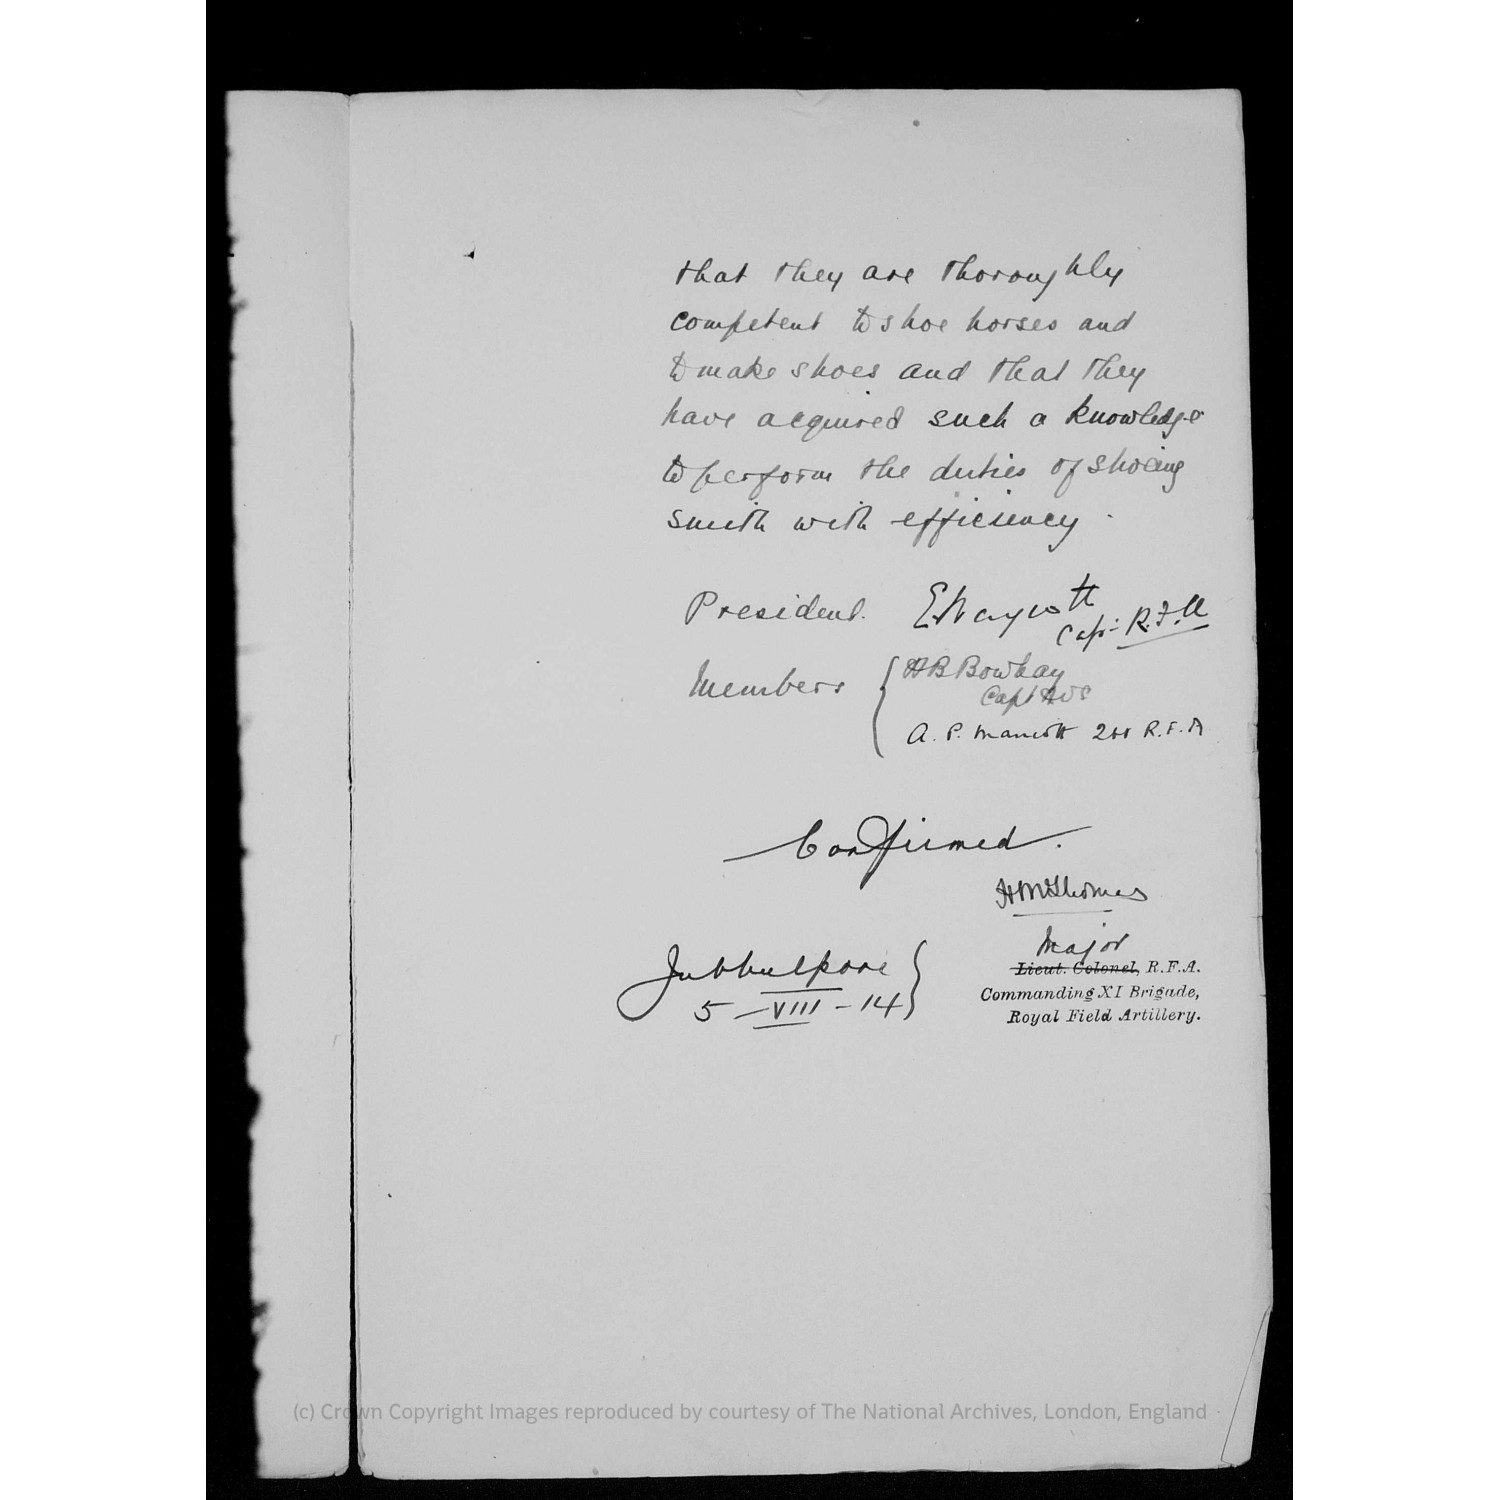 that they are thoroughly
competent to shoe horses and
to make shoes and that they
have acquired such a knowledge
to perform the duties of shoeing
smith with efficiency.
President. Capt: R.F.A
Members HB Bowhay
Capt AVC
A. P. Marriott 2nd R.F.A
Confirmed.
HM Thomas
Major
Jubbulpore
Lieut. Colonel, R.F.A.
5-VIII-14
Commanding XI Brigade,
Royal Field Artillery.
(c) Crown Copyright Images reproduced by courtesy of The National Archives, London, England